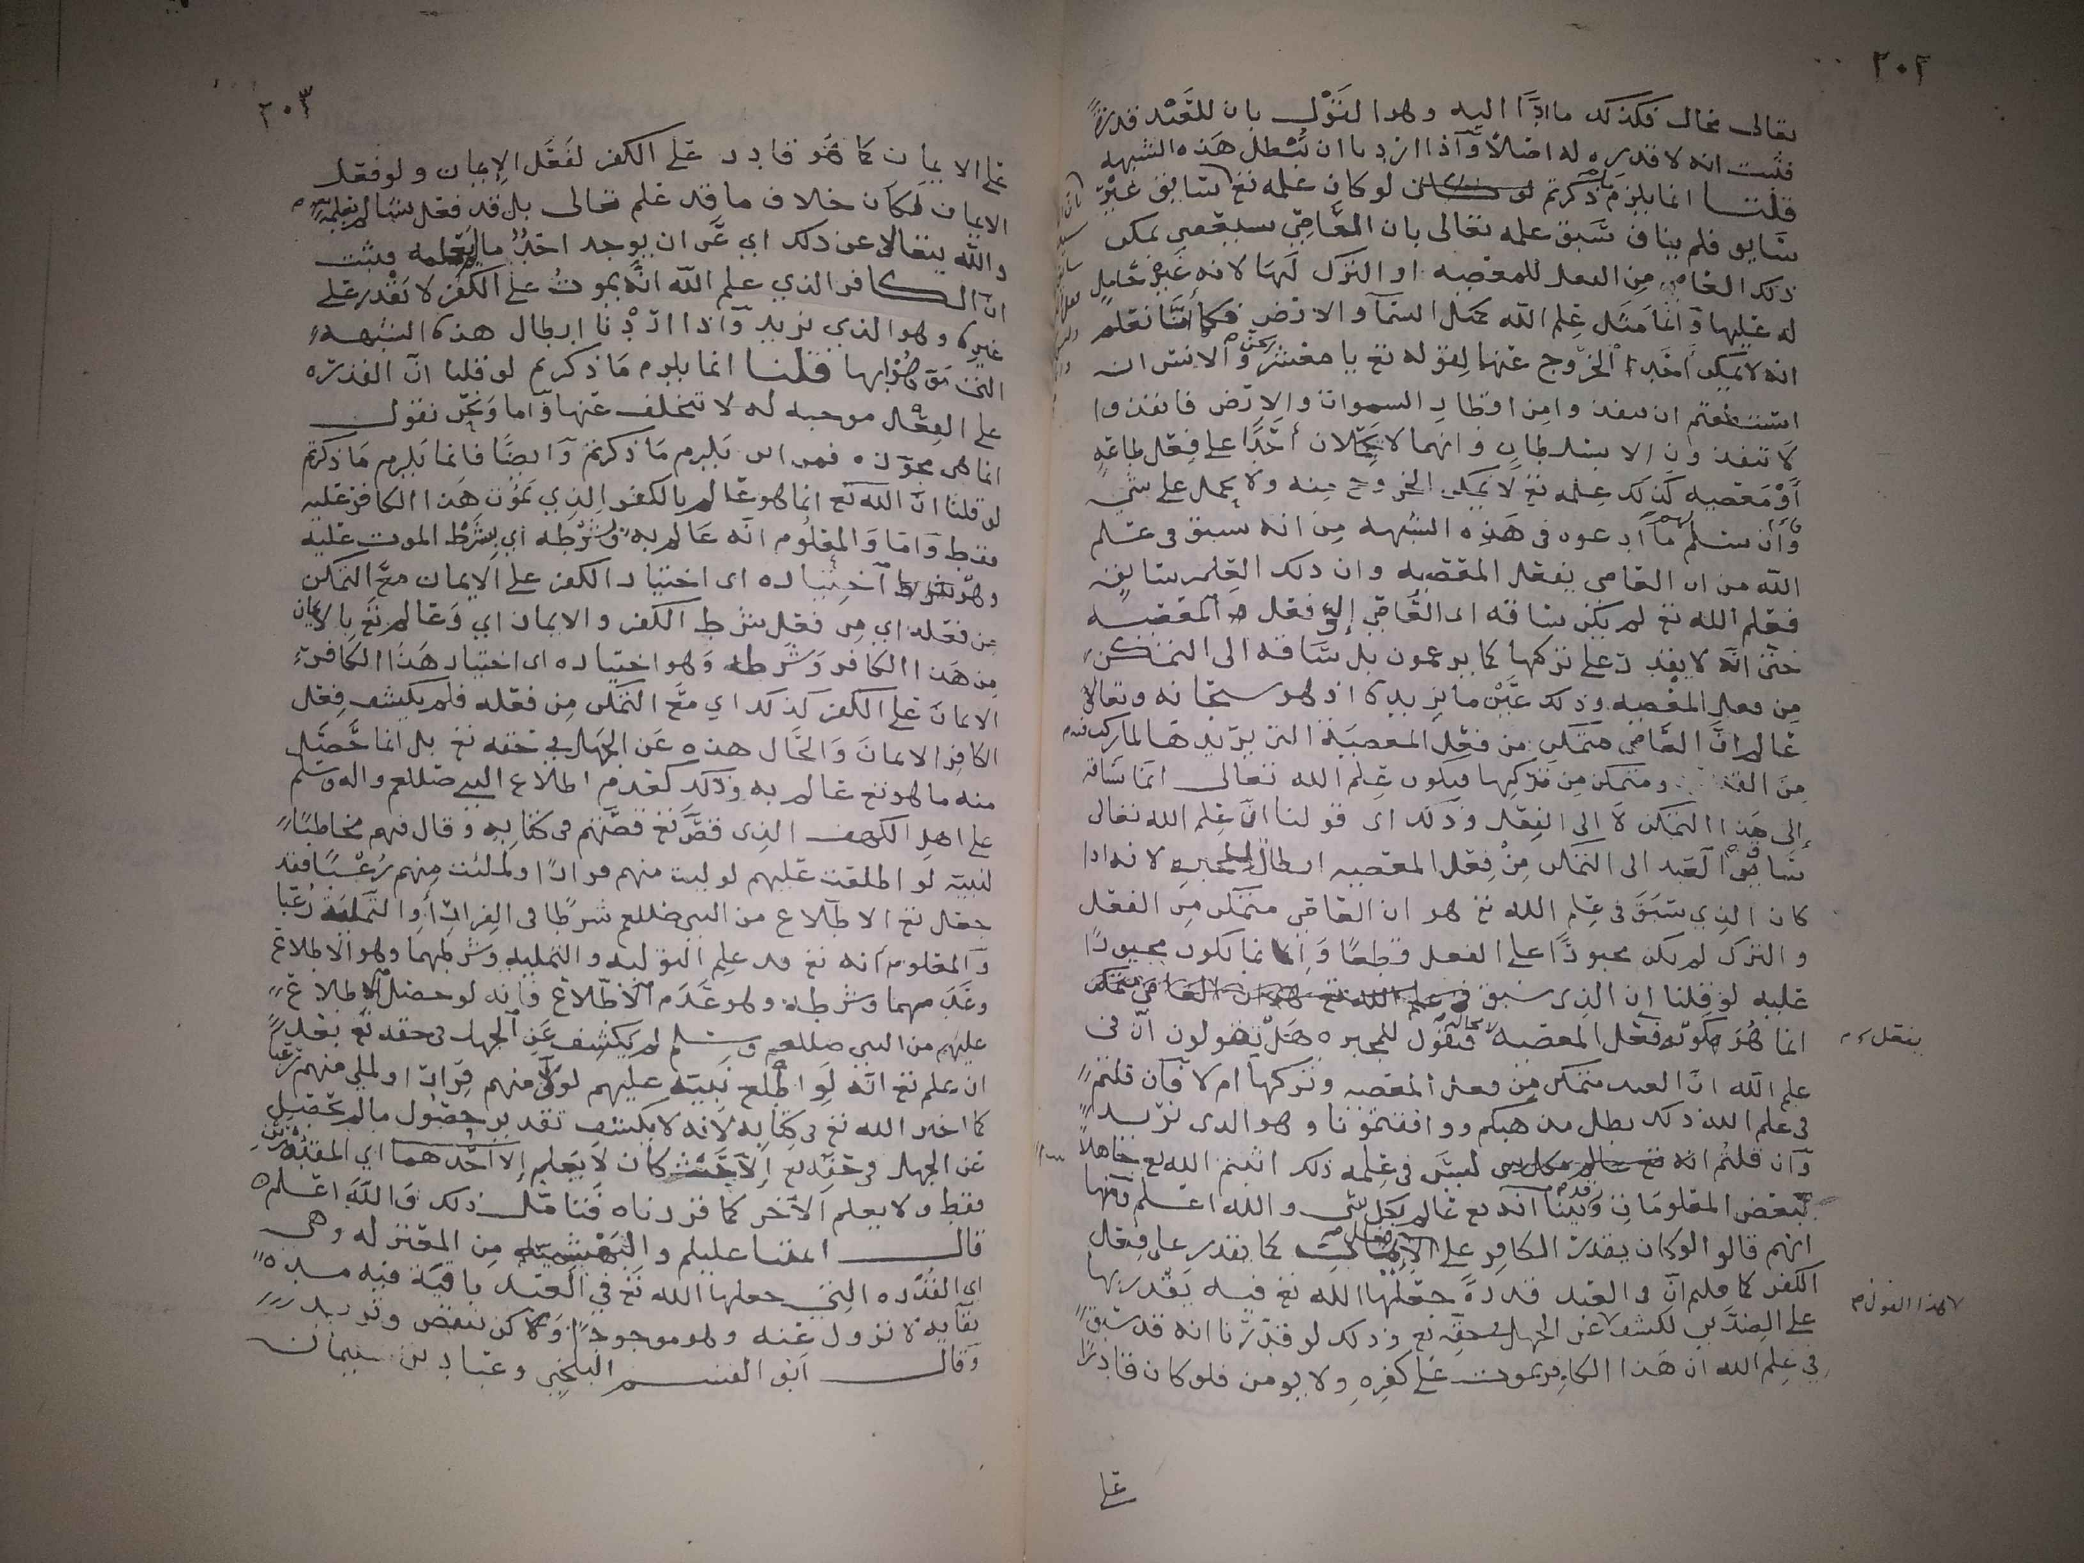 ٢٠٢
تعالى محال فكذلك ما ادّا اليه وهو القول بان للعبد قدرةً
فثبت انه لا قدره له اصلاً وآذا اردنا ان نُبْطل هذه الشبهه
قلنا انما يلزم ما ذكرتم لو كان علمه تع سابق غير
سايق فلم يناف سبق علمه تعالى بان العاصي سيعصي تمكن
ذلك العاصي من الفعل للمعصيه او الترك لها لانه غير حامل
له عليها وآنما مَثَل علم الله كمثل السمآ والارض فكما أنّا نعلم
انه لا يمكن أحدا الخروج عنها لقوله تع يا معشر الجن والانس ان
استطعتم ان تنفذوا من اقطار السموات والارض فانفذوا
لا تنفذون الا بسلطان وانهما لا يحملان أحدًا على فعل طاعةٍ
أوْ معصيه كذلك علمه تع لا يمكن الخروج منه ولا يحمل على شي
وأن سلم ما ادعوه في هذه الشبهه من انه سبق في علم
الله من ان العاصي يفعل المعصيه وان ذلك العلم سايق
فعلم الله تع لم يكن ساقه اى العاصي إلى فعل المعصيه
حتى انّه لا يقدر على تركها كما يزعمون بل ساقه الى التمكن
من فعل المعصيه وذلك عَيْن ما نريده اذ هو سبحانه وتعالى
عالم انّ العاصي متمكن من فعل المعصية التي يريدها لما ركب فيه
من القدره ومتمكن من تركها فيكون علم الله تعالى انما ساقه
إلى هذا التمكن لا الى الفعل وذلك اى قولنا انّ علم الله تعالى
سايق العبد الى التمكن مِنْ فعل المعصيه ابطال للجبر لانه اذا
كان الذي سَبَقَ في علم الله تع هو ان العاصي متمكن من الفعل
والترك لم يكن مجبورًا على الفعل قطعًا وَانما يكون مجبورًا
عليه لو قلنا إن الذي سبق في علم الله تع هو ان العاصي متمكن
انما هُوَ كونه فعل المعصيه لا محاله فنقول للمجبره هَلْ تقولون انّ في
ينفعل
علم الله انّ العبد متمكن من فعل المعصيه وتركها أم لا فآن قلتم
في علم الله ذلك بطل مذهبكم ووافقتمونا وهو الذي نريد
وآن قلتُم انه ليسَ في علمه ذلك اثبتم الله تع جاهلاً
ببعض المعلومات وقد بيّنا آنه تع عالم بكل شي والله اعلم
انهم قالوا لو كان يقدر الكافر على الايمان كما يقدر على فعل
الكفر كما قلتم انّ في العبد قدرةً جعلها الله تع فيه يَقْدر بها
لهذا القول
على الضدّين لكشف عن الجهل في حقه تع وذلك لو قدّرنا انه قد سبق
في علم الله ان هذا الكافر يموت على كفره ولا يومن فلو كان قادرًا
على
٢٠٣
على الايمان كما هُو قادر على الكفر لفَعَل الإيمان ولو فعل
الايمان لَكان خلاف ما قد علم تعالى بل قد فعل شيئا لم يعلمه
والله يتعالى عن ذلك اي عن ان يوجد احدٌ ما لم يعلمه فثبت
انّ الكافر الذي علم الله انّه يموتُ على الكفر لا يقدر على
غيره وهو الذي نريد وآذا اردْنا ابطال هذه الشبهه
التي قلنا انما يلزم ما ذكرتم لو قلنا انّ القدره
على الفعل موجبه له لا تتخلف عنها وآما ونحن نقول
انما هي فمن اين يلزم ما ذكرتم وآيضًا فانما يلزم ما ذكرتم
لو قلنا انّ الله تع انما هو عالم بالكفر الذي يموت هذا الكافر عليه
فقط وآما والمعلوم انّه عالم به وبشرْطه اي بشَرْط الموت عليه
وهو اختياره اى اختيار الكفر على الايمان مع التمكن
من فعله اي من فعل شرط الكفر والايمان اي وَعالم تع بالايمان
من هذا الكافر وشَرطه وَهو اختياره اى اختيار هذا الكافر
الايمان على الكفر كذلك اي مَع التمكن مِن فعله فلم يكشف فعل
الكافر الايمانَ وَالحال هذه عَن الجهل في حقه تع بل انما حصل
منه ما هو تع عالم به وذلك كعدم اطلاع النبي صللم واله وسلم
على اهل الكهف الذي قصّ تع قصّتهم في كتابه وَقال فيهم مخاطبًا
لنبيّه لو اطلعت عليهم لوليت منهم فرارًا ولملئت منهم رُعْبًا فقد
جعل تع الاطّلاع من النبي صللم شرطًا في الفرار أوالتمليه رُعْبًا
وَالمعلوم أنه تع قد علم التوليه والتمليه وشرطهما وهو الاطلاع
وعَدَمهما وشرطه وهو عَدَم الاطّلاع فانه لو حصل الاطلاع
عليهم من النبي صللم وسلم لم يكشف عَنِ الجهل في حقه تع بعد
ان علم تع انّه لَوِ اطّلع نبيّه عليهم لولّى منهم فرارًا ولملي منهم رُعبًا
كما اخبر الله تع في كتابه لانه لا يكشف تقدير حصُول ما لم يحصل
عن الجهل في حقه تع إلا كان لا يَعلم إلا أحدهما اي المقدورين
فقط ولا يعلم الاخر كما قررناه فتأمّل ذلك وَاللهَ اعلم
قال ايمتنا عليلم والبَهْشَميّه من المعتزله وهى
اي القُدْره التي جعلها الله تع في العبد باقية فيه مده
بقايه لا تزول عنه وهو موجود ولكن تنقص وتزيد
وقال ابو القسم البلخي وعباد بن سليمان